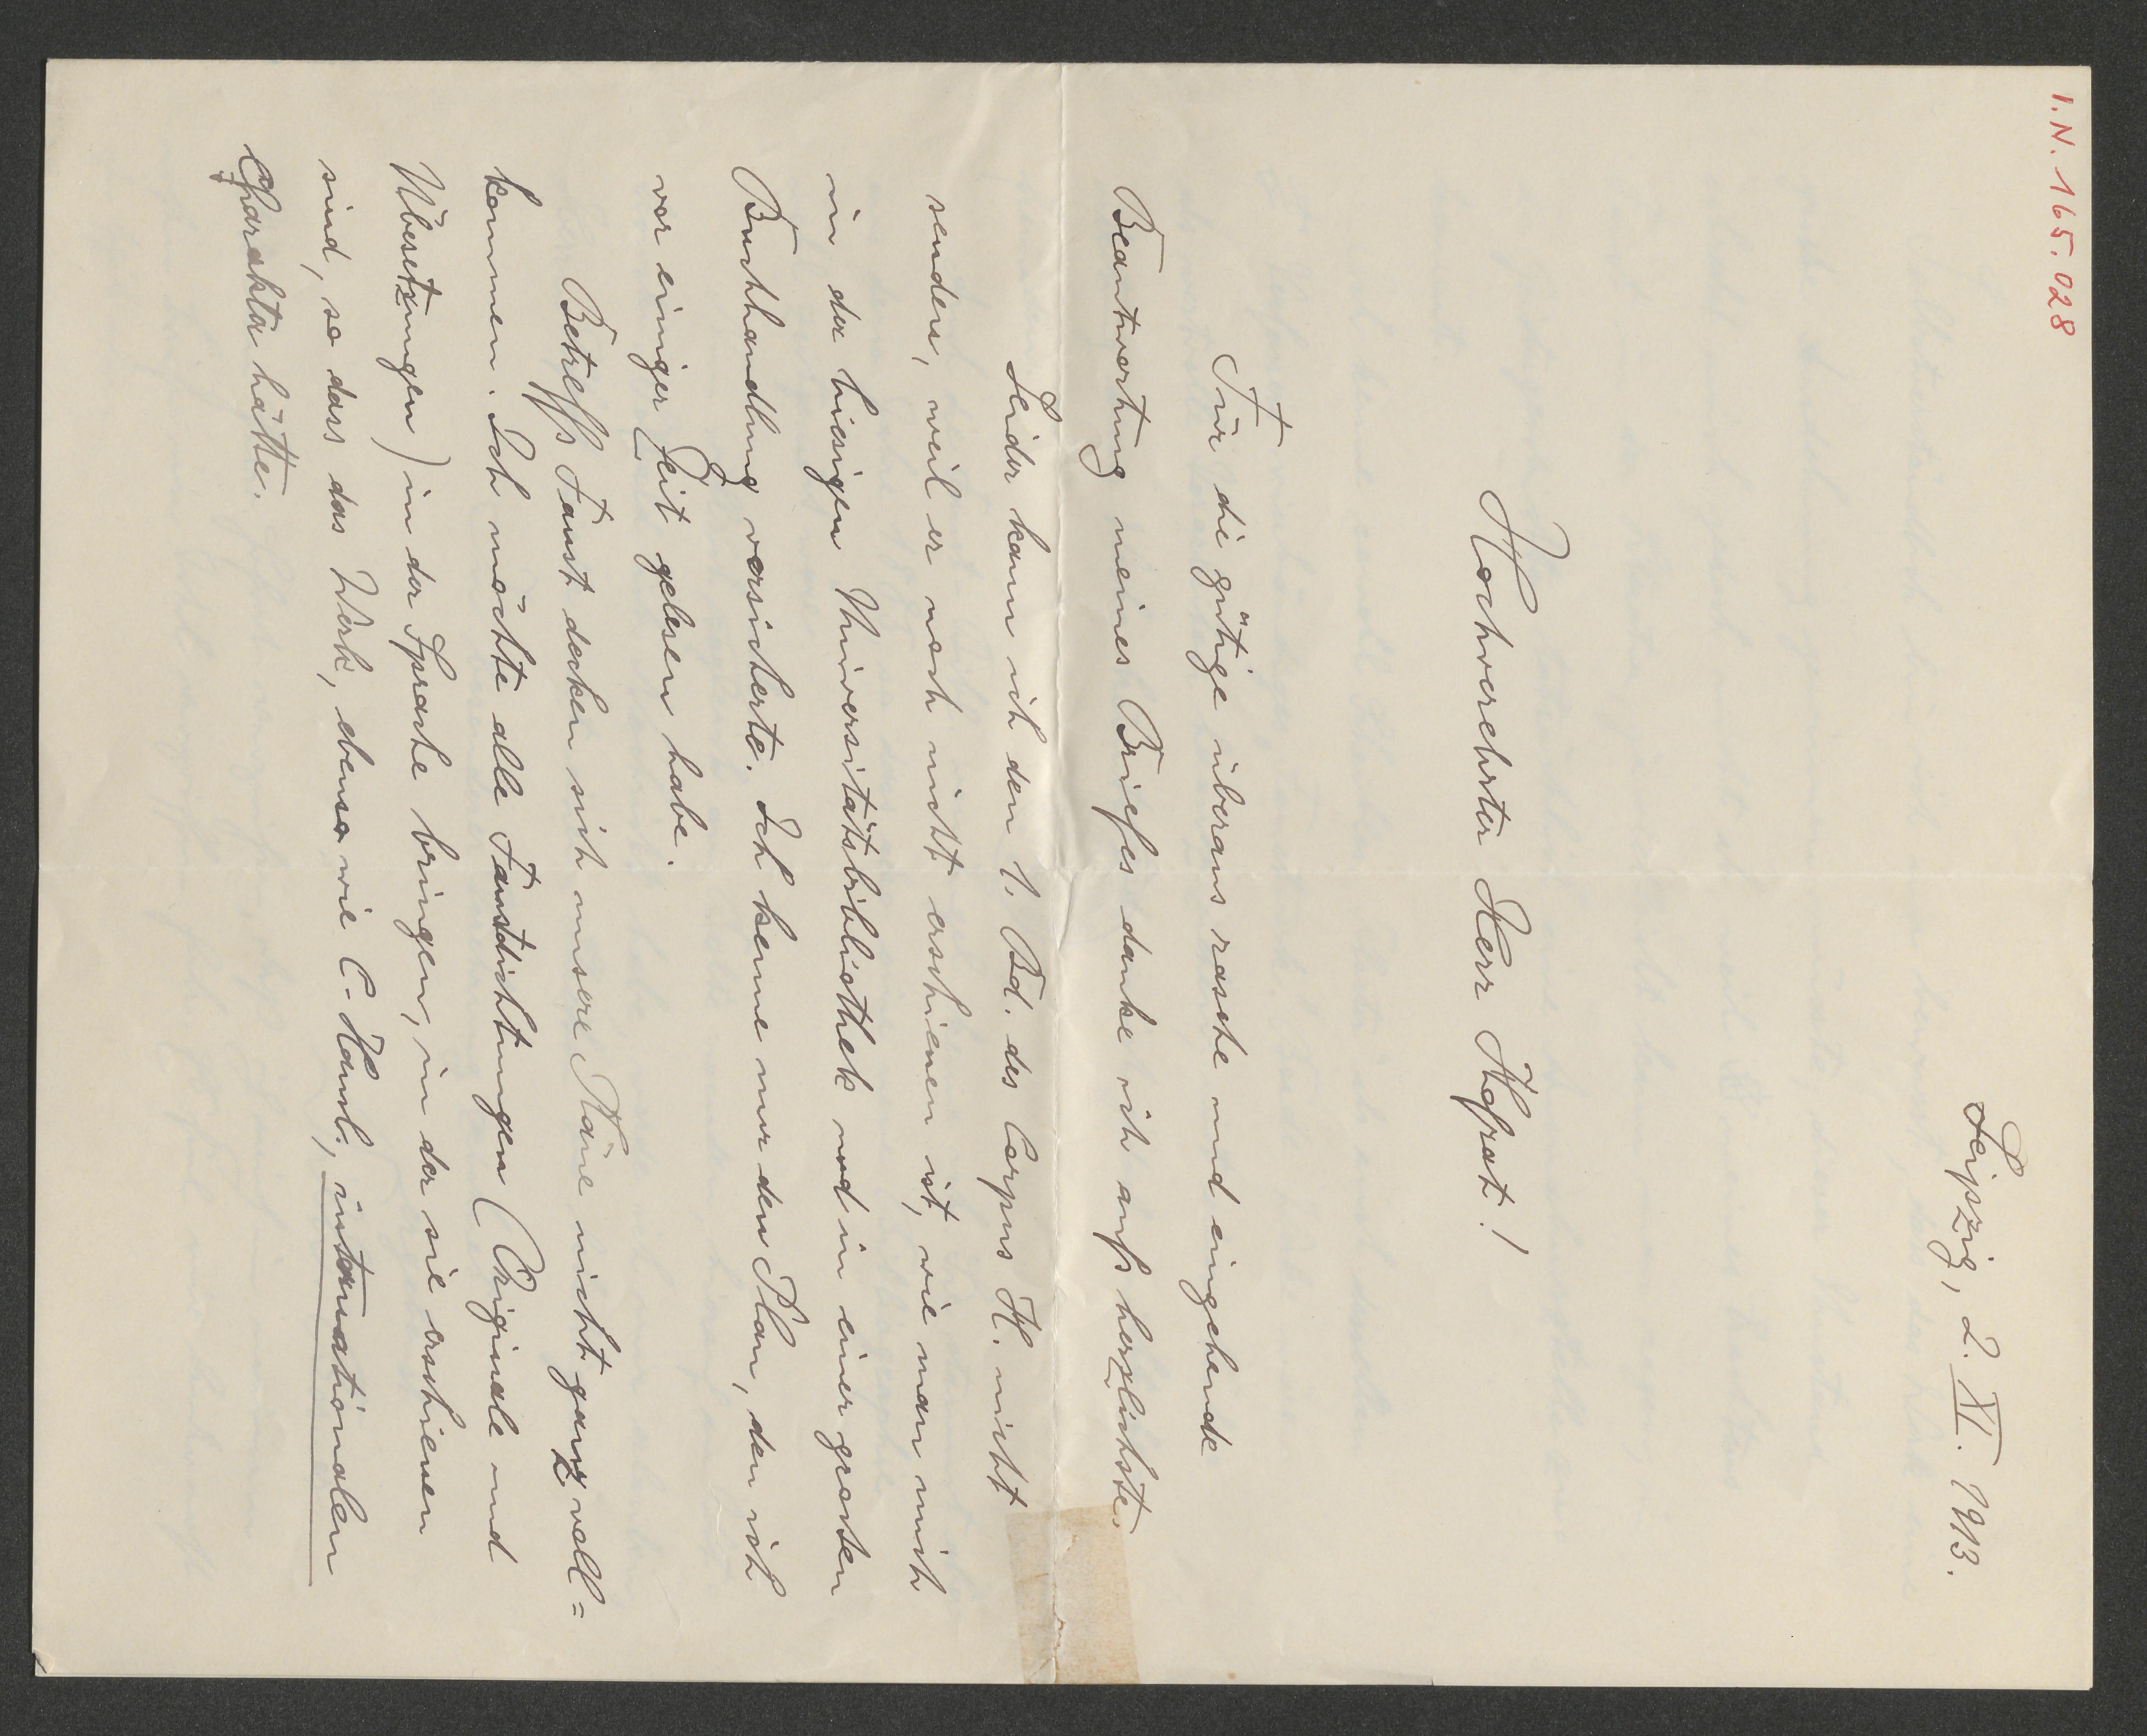 I.N. 165.028
Leipzig, 2. XI. 1913.
Hochverehrter Herr Hofrat!
Für die gütige überaus rasche und eingehende
Beantwortung meines Briefes danke ich aufs herzlichste.
Leider kann ich den 1. Bd. des Corpus H. nicht
senden, weil er noch nicht erschienen ist, wie man mich
in der hiesigen Universitätsbibliothek und in einer grossen
Buchhandlung versicherte. Ich kenne nur den Plan, den ich
vor einiger Zeit gelesen habe.
Betreffs Faust decken sich unsere Pläne nicht ganz voll=
kommen. Ich möchte alle Faustdichtungen (Originale und
Übersetzungen) in der Sprache bringen, in der sie erschienen
sind, so dass das Werk, ebenso wie C. Haml., internationalen
Charakter hätte.